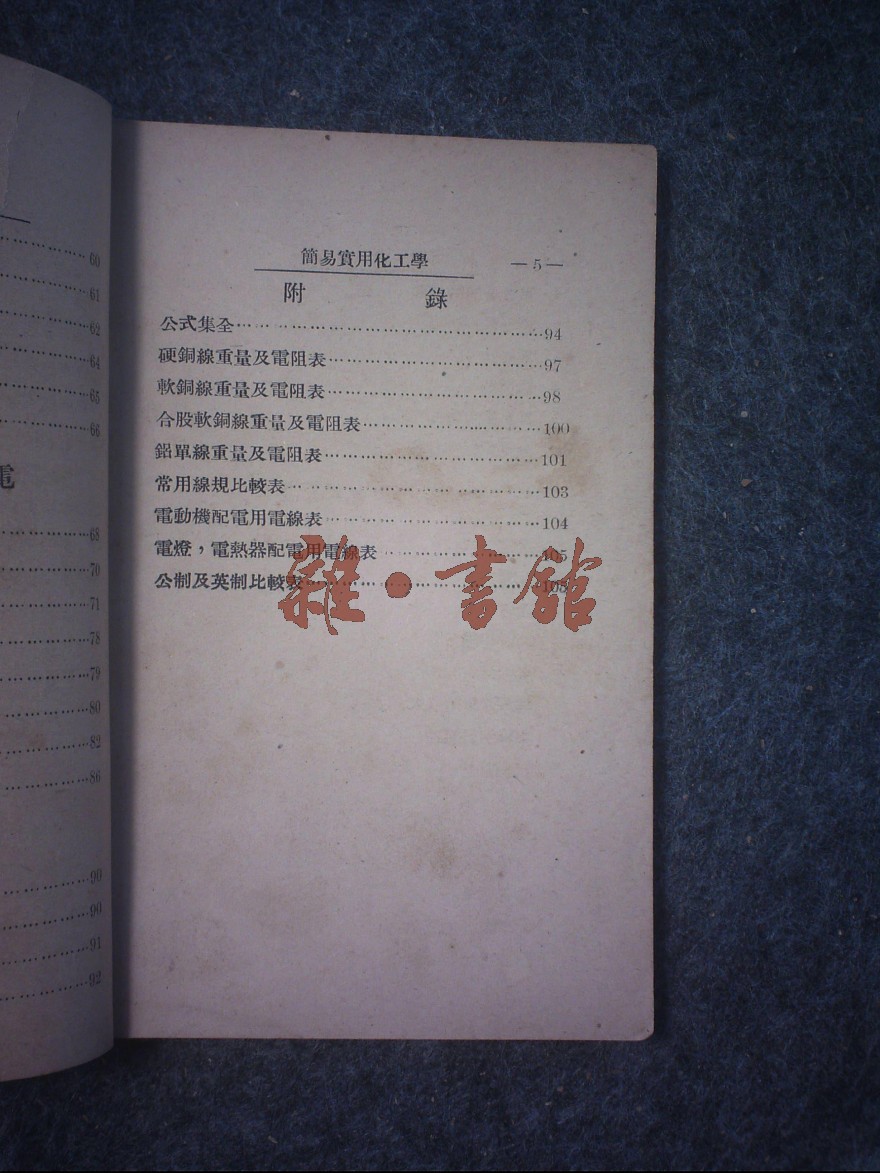 60
61
62
64
65
66
電
68
70
71
78
79
80
82
86
90
90
91
92
簡易實用化工學 —5—
附 錄
公式集全……………………………………94
硬銅線重量及電阻表……………………………97
軟銅線重量及電阻表……………………………98
合股軟銅線重量及電阻表………………………100
鋁單線重量及電阻表……………………………101
常用線規比較表…………………………………103
電動機配電用電線表……………………………104
電燈，電熱器配電用電線表……………………105
公制及英制比較表………………………………
雜·書館